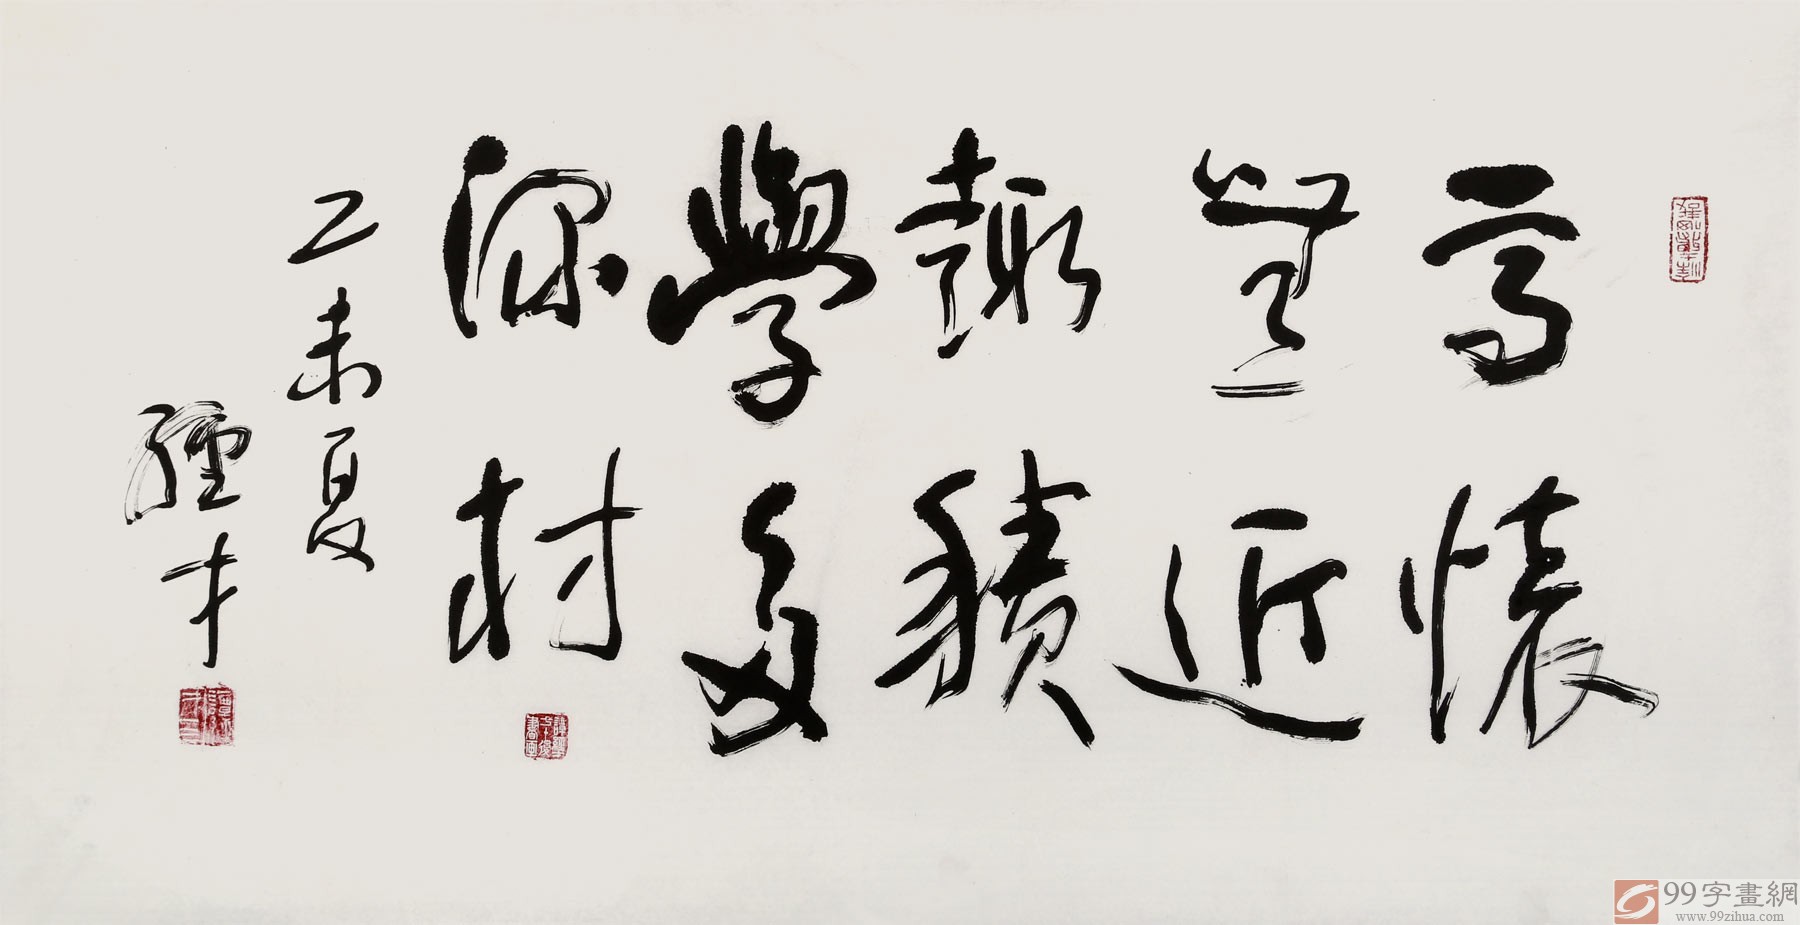 高懷
無近
趣積
學多
深材
乙未夏
經才
99字畫網
www.99zihua.com